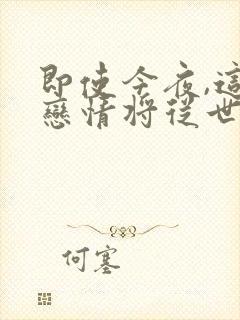 即使今夜,這
戀情將從世
何塞